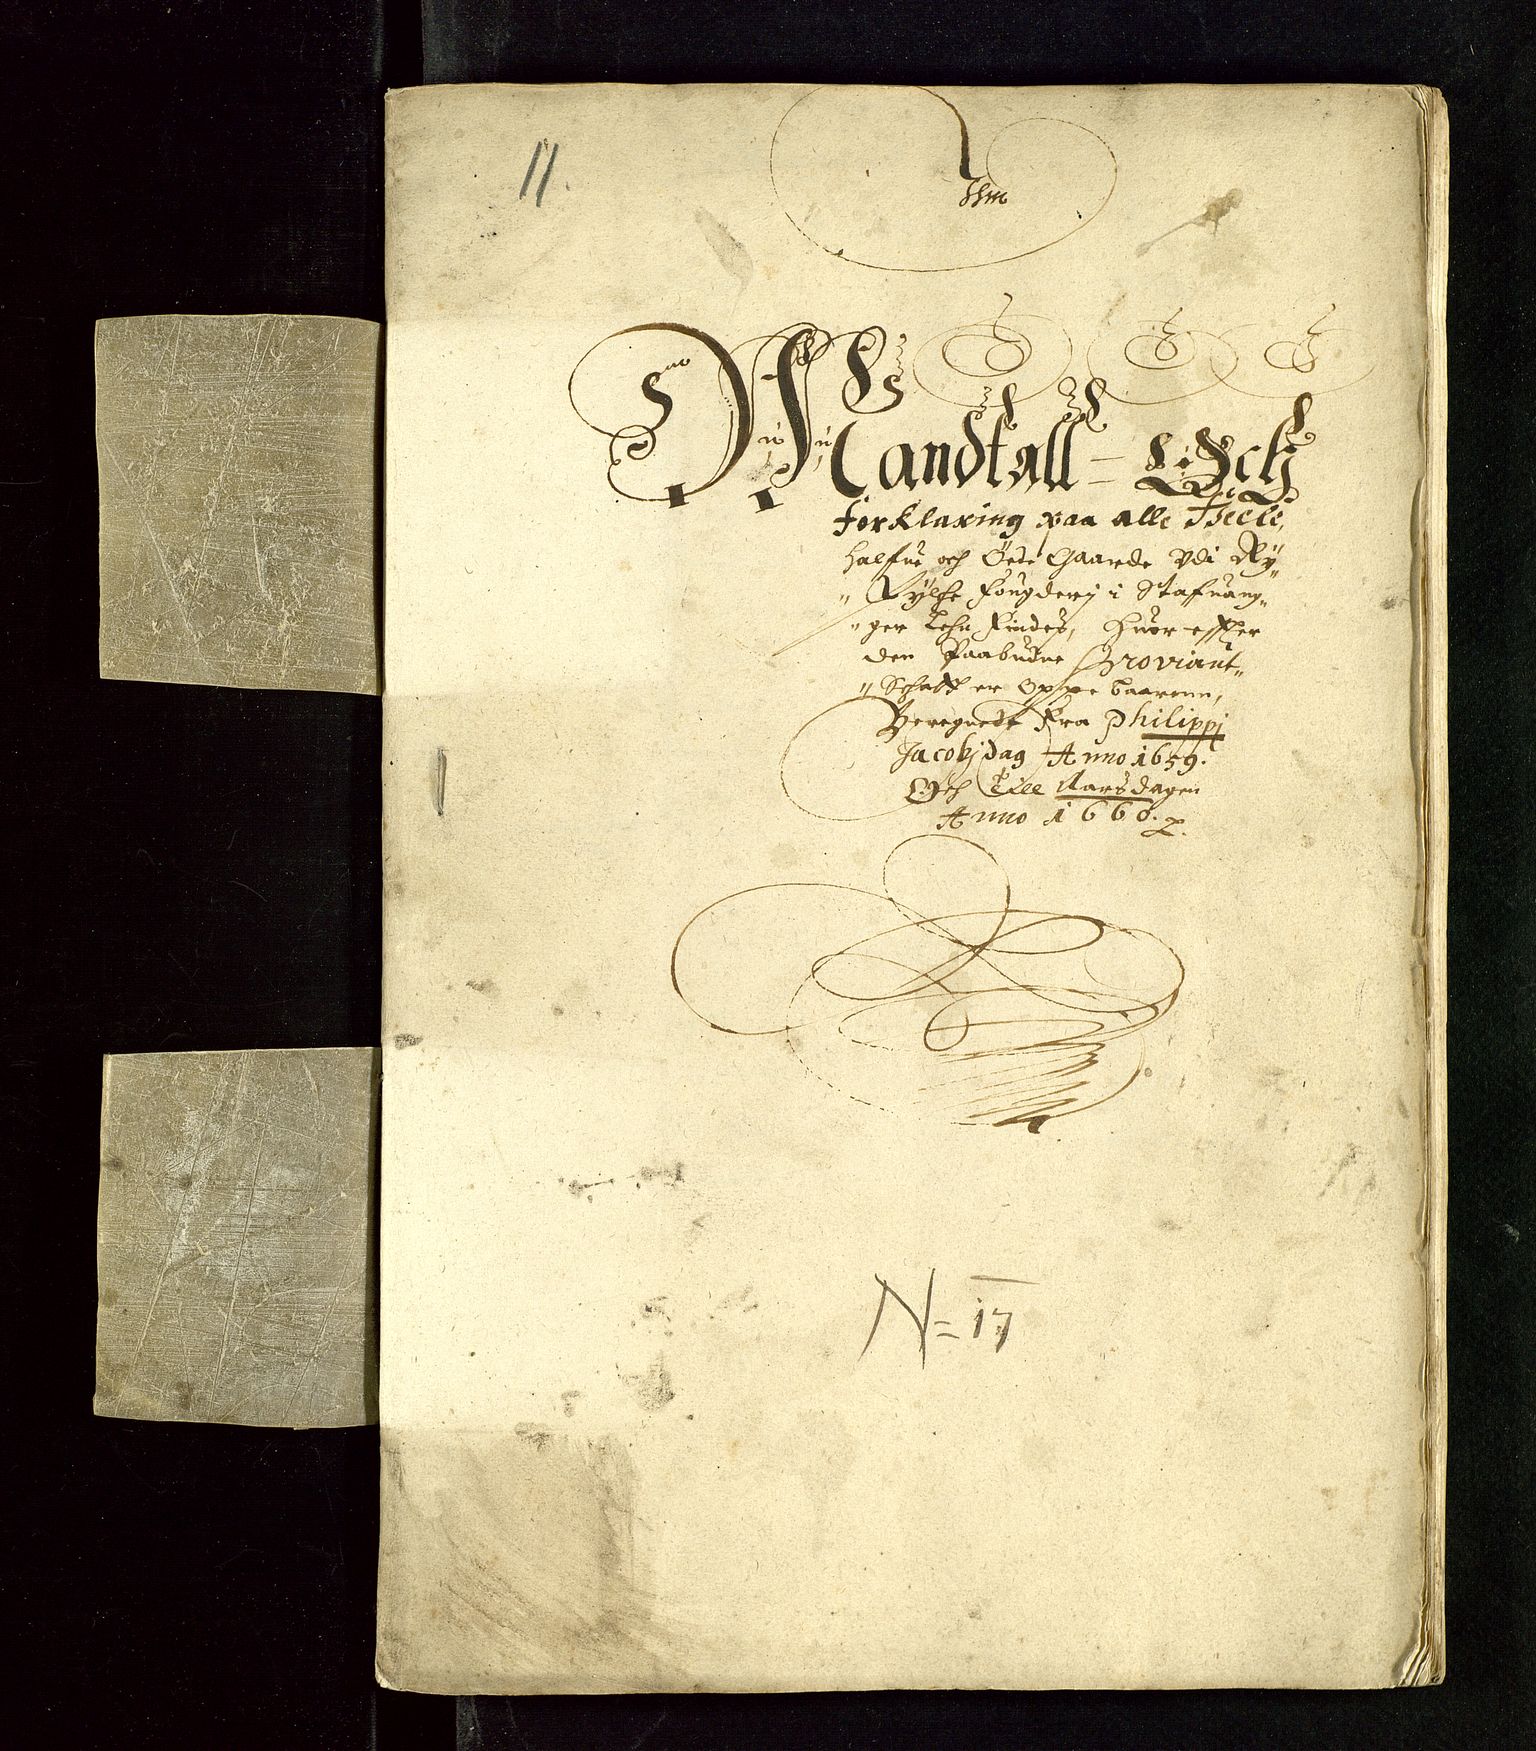 11.
Mandtall = Och
forklaring paa alle Heele,
halfue och Öde Gaarde Vdi Ry„
„ Fylche Fougderij i Stafuang„
„ger Lehn Findes, Huor effter
den Paabudne Proviant„
„ Schatt er Oppe baaren,
Beregnedt Fra Philippj
Jacobj dag Anno 1659.
Och Till Aarsdagen
Anno 1660.
N= 17